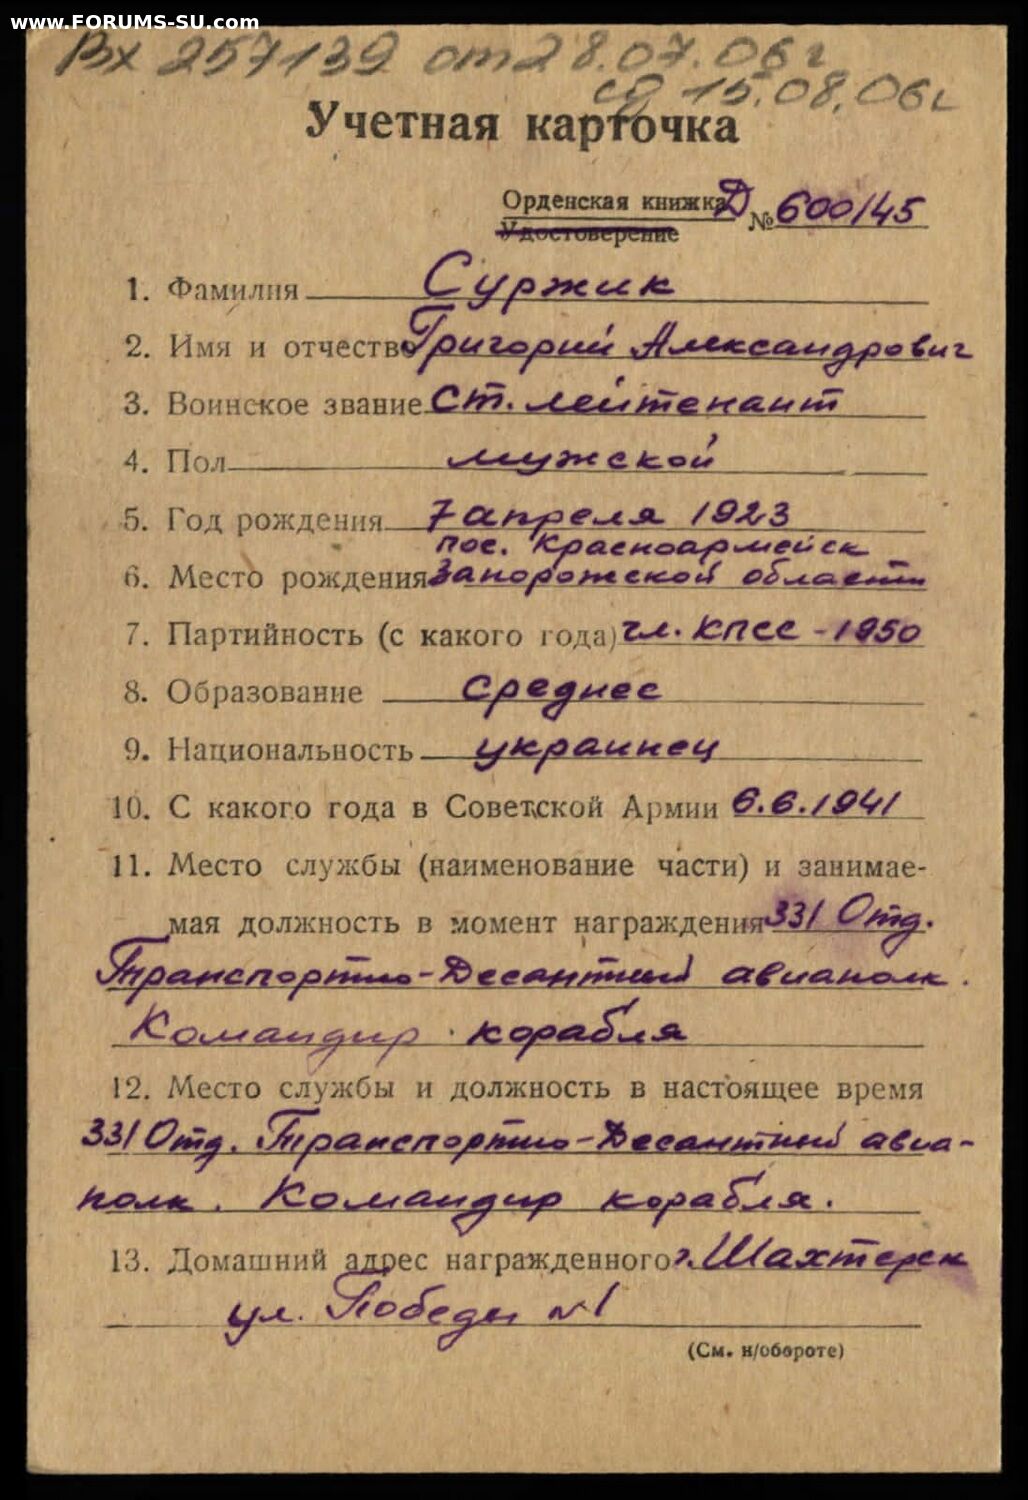 www.FORUMS-SU.com
Вх 257139 от 28.07.06г
сд 15.08.06г
Учетная карточка
Орденская книжка Д № 600145
Удостоверение
1. Фамилия Суржик
2. Имя и отчество Григорий Александрович
3. Воинское звание ст. лейтенант
4. Пол мужской
5. Год рождения 7 апреля 1923
пос. Красноармейск
6. Место рождения Запорожской области
7. Партийность (с какого года) чл. КПСС - 1950
8. Образование среднее
9. Национальность украинец
10. С какого года в Советской Армии 6.6.1941
11. Место службы (наименование части) и занимае-
мая должность в момент награждения 331 Отд.
Транспортно-Десантный авиаполк.
Командир корабля
12. Место службы и должность в настоящее время
331 Отд. Транспортно-Десантный авиа-
полк. Командир корабля.
13. Домашний адрес награжденного г. Шахтерск
ул. Победы №1
(См. н/обороте)